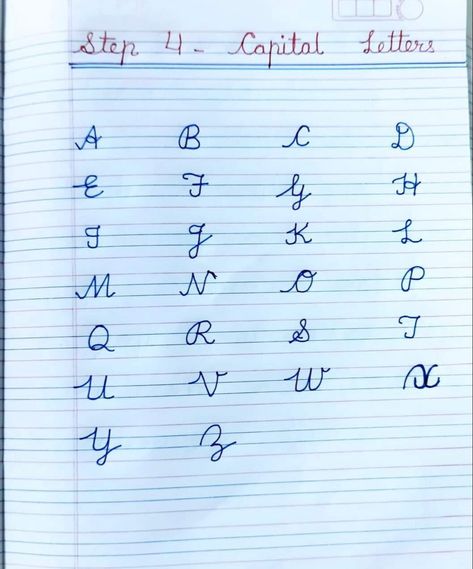 Step 4 - Capital Letters
A B C D
E F G H
I J K L
M N O P
Q R S T
U V W X
Y Z